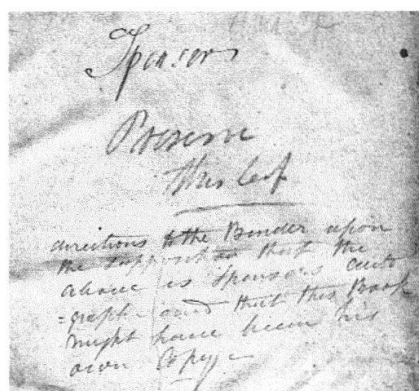 Spensers
Preserve
this leaf
directions to the Binder upon
the supposition that the
above is Spensers auto
=graph and that this Book
might have been his
own Copy